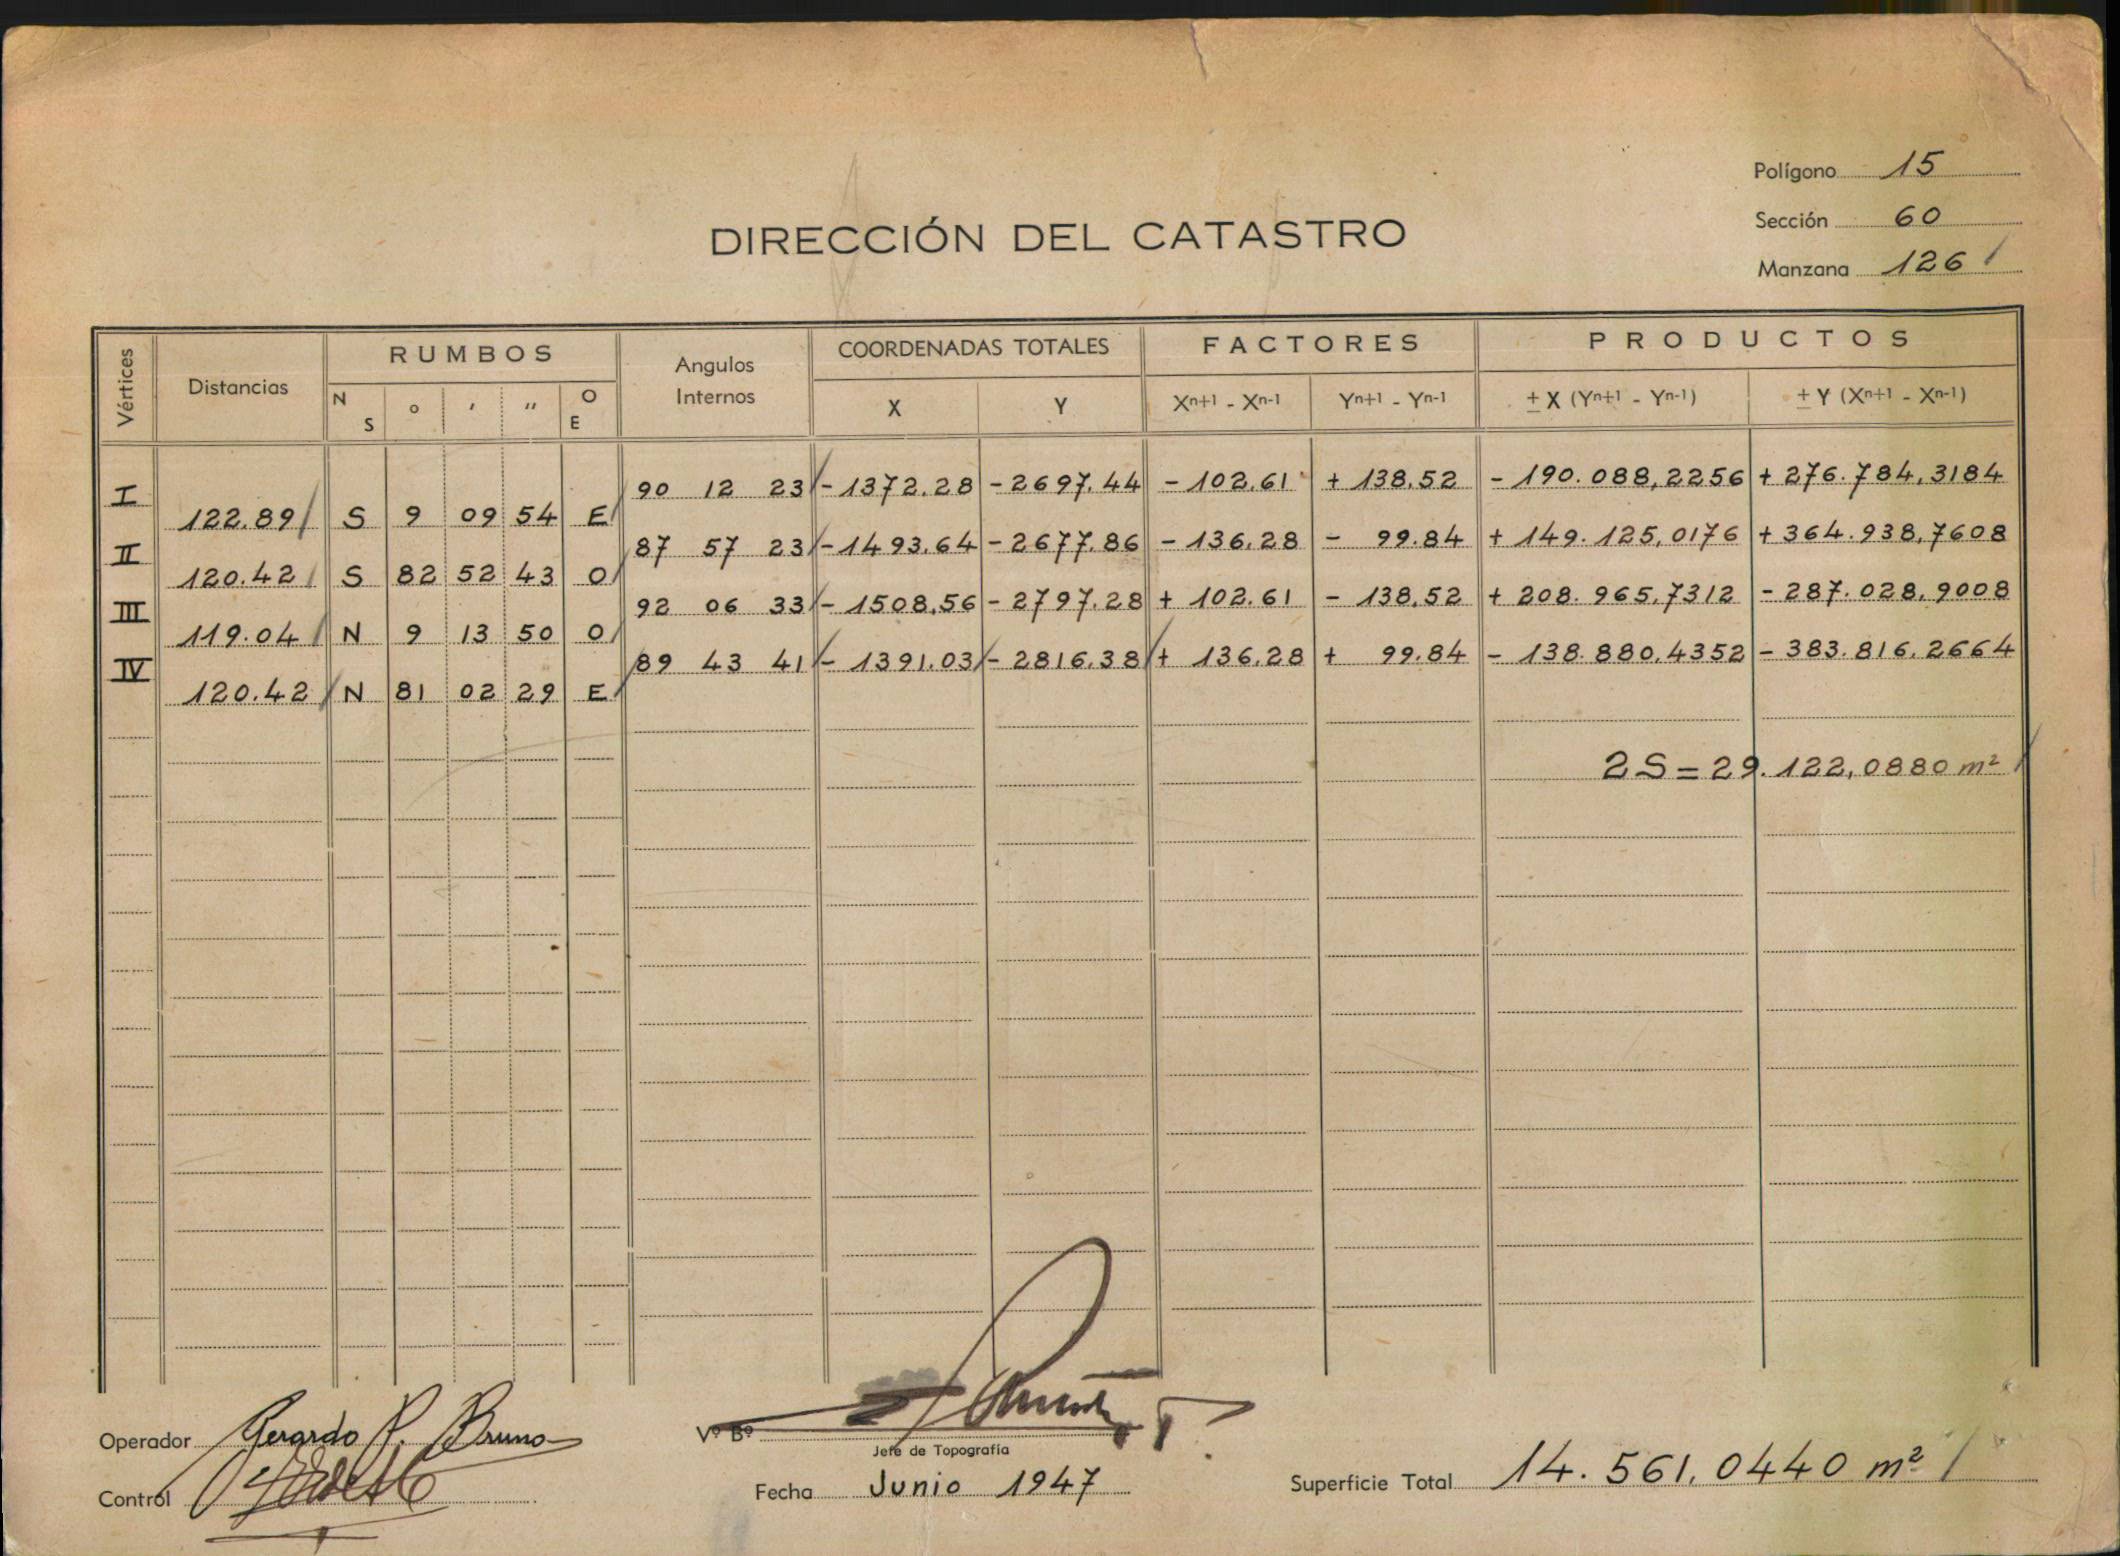 Polígono 15
Sección 60
DIRECCIÓN DEL CATASTRO
Manzana 126
Vértices Distancias RUMBOS Angulos Internos COORDENADAS TOTALES FACTORES PRODUCTOS
N S ° ' " O E X Y Xn+1 - Xn-1 Yn+1 - Yn-1 ± X (Yn+1 - Yn-1) ± Y (Xn+1 - Xn-1)
I 90 12 23 - 1372.28 - 2697.44 - 102.61 + 138.52 - 190.088,2256 + 276.784,3184
122.89 S 9 09 54 E
II 87 57 23 - 1493.64 - 2677.86 - 136.28 - 99.84 + 149.125,0176 + 364.938,7608
120.42 S 82 52 43 O
III 92 06 33 - 1508.56 - 2797.28 + 102.61 - 138.52 + 208.965,7312 - 287.028,9008
119.04 N 9 13 50 O
IV 89 43 41 - 1391.03 - 2816.38 + 136.28 + 99.84 - 138.880,4352 - 383.816,2664
120.42 N 81 02 29 E
2S = 29.122,0880 m²
Operador Gerardo P. Bruno
Vº Bº
Jefe de Topografía
Control
Fecha Junio 1947
Superficie Total 14.561,0440 m²